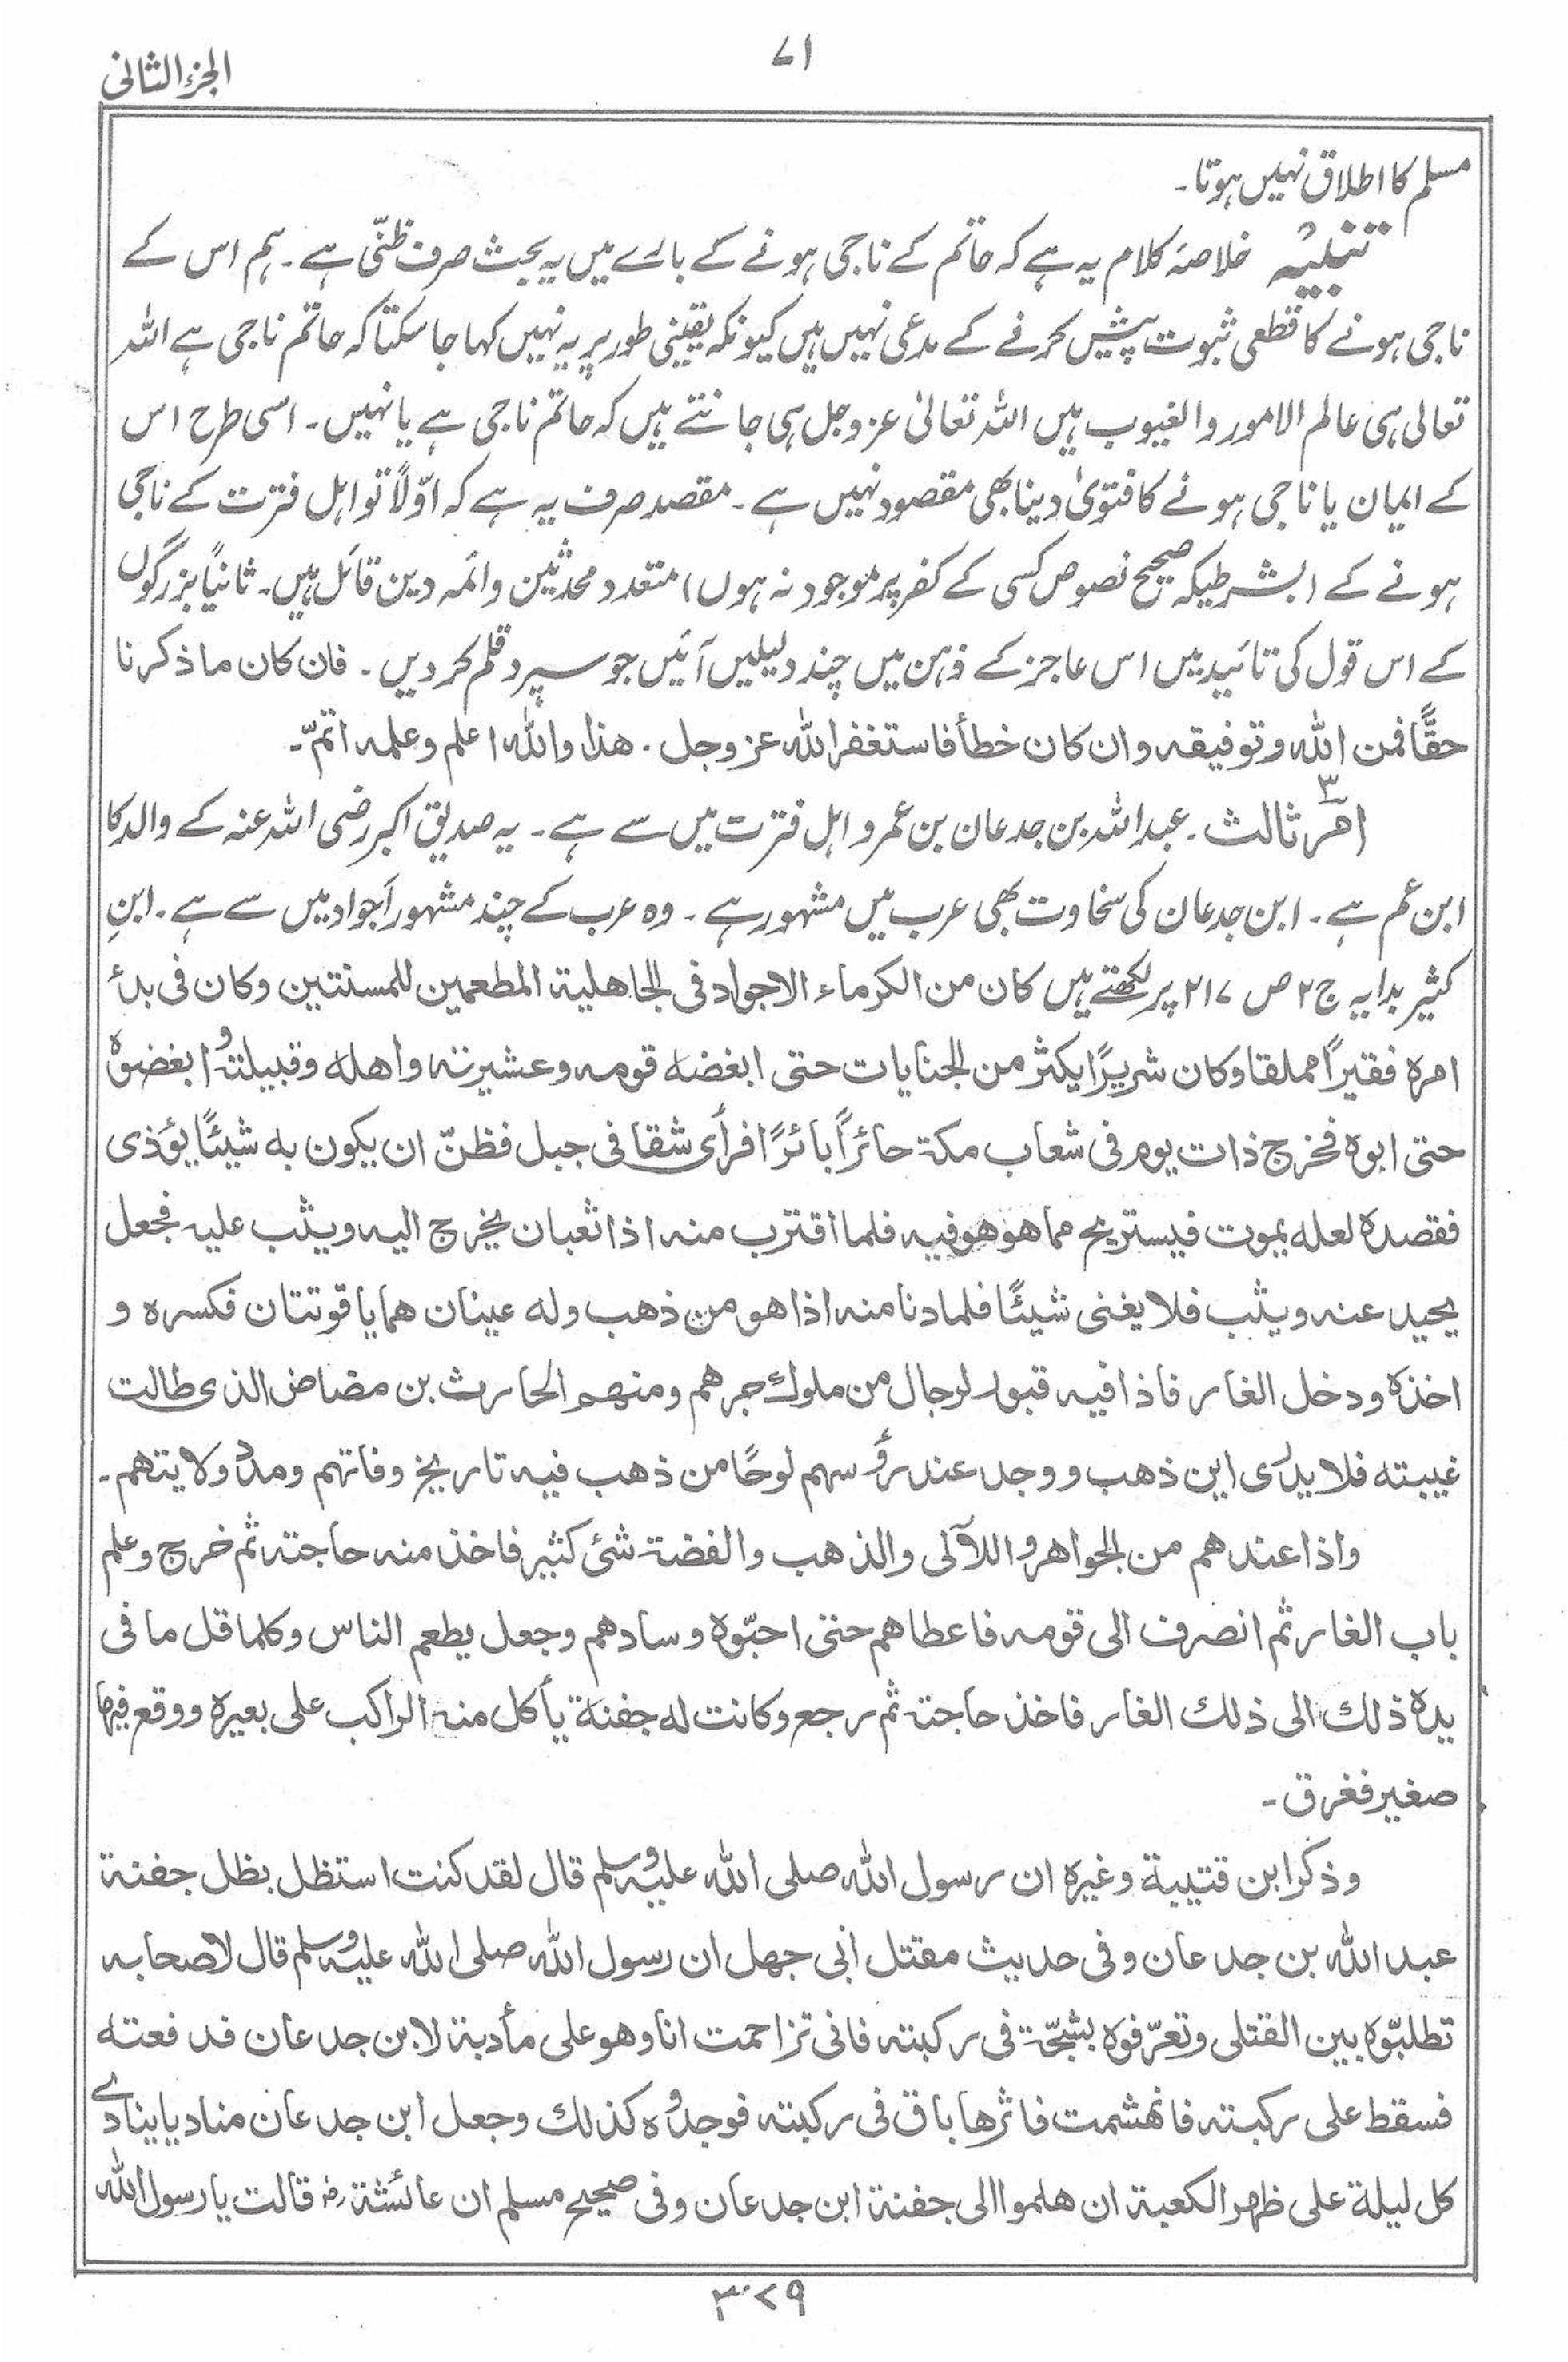 الجزء الثانی
۷۱
مسلم کا اطلاق نہیں ہوتا۔
تنبیہ خلاصۂ کلام یہ ہے کہ حاتم کے ناجی ہونے کے بارے میں یہ بحث صرف ظنّی ہے۔ ہم اس کے
ناجی ہونے کا قطعی ثبوت پیش کرنے کے مدعی نہیں ہیں کیونکہ یقینی طور پر یہ نہیں کہا جا سکتا کہ حاتم ناجی ہے اللہ
تعالی ہی عالم الامور والغیوب ہیں اللہ تعالیٰ عزوجل ہی جانتے ہیں کہ حاتم ناجی ہے یا نہیں۔ اسی طرح اس
کے ایمان یا ناجی ہونے کا فتویٰ دینا بھی مقصود نہیں ہے۔ مقصد صرف یہ ہے کہ اوّلاً تو اہل فترت کے ناجی
ہونے کے (بشرطیکہ صحیح نصوص کسی کے کفر پر موجود نہ ہوں) متعدد محدثین وائمہ دین قائل ہیں۔ ثانیاً بزرگوں
کے اس قول کی تائید میں اس عاجز کے ذہن میں چند دلیلیں آئیں جو سپرد قلم کر دیں۔ فان کان ما ذکرنا
حقًّا فمن اللہ وتوفیقہ وان کان خطأ فاستغفر اللہ عزوجل۔ ھذا واللہ اعلم وعلمہ اتمّ۔
امر ثالث۔ عبداللہ بن جدعان بن عمرو اہل فترت میں سے ہے۔ یہ صدیق اکبر رضی اللہ عنہ کے والد کا
ابن عم ہے۔ ابن جدعان کی سخاوت بھی عرب میں مشہور ہے۔ وہ عرب کے چند مشہور اَجواد میں سے ہے۔ ابنِ
کثیر بدایہ ج۲ ص ۲۱۷ پر لکھتے ہیں کان من الکرماء الاجواد فی الجاھلیة المطعمین للمسنتین وکان فی بدأ
امرہ فقیراً مملقا وکان شریرًا یکثر من الجنایات حتی ابغضہ قومہ وعشیرتہ واھلہ وقبیلتہ و ابغضوہ
حتی ابوہ فخرج ذات یوم فی شعاب مکة حائراً بائرًا فرأی شقا فی جبل فظنّ ان یکون بہ شیئًا یؤذی
فقصدہ لعلہ یموت فیستریح مما ھو ھو فیہ فلما اقترب منہ اذا ثعبان یخرج الیہ ویثب علیہ فجعل
یحید عنہ ویثب فلا یغنی شیئًا فلما دنا منہ اذا ھو من ذھب ولہ عینان ھما یاقوتتان فکسرہ و
اخذہ ودخل الغار فاذا فیہ قبور لرجال من ملوك جرھم ومنھم الحارث بن مضاض الذی طالت
غیبتہ فلا یدری این ذھب ووجد عند رؤسھم لوحًا من ذھب فیہ تاریخ وفاتھم ومدد ولایتھم۔
واذا عندھم من الجواھر و اللآلی والذھب والفضة شئ کثیر فاخذ منہ حاجتہ ثم خرج وعلم
باب الغار ثم انصرف الی قومہ فاعطاھم حتی احبّوہ وسادھم وجعل یطعم الناس وکلما قل ما فی
یدہ ذلك الی ذلك الغار فاخذ حاجتہ ثم رجع وکانت لہ جفنة یأکل منہ الراکب علی بعیرہ ووقع فیھا
صغیر فغرق۔
وذکر ابن قتیبة وغیرہ ان رسول اللہ صلی اللہ علیہ وسلم قال لقد کنت استظل بظل جفنة
عبد اللہ بن جدعان وفی حدیث مقتل ابی جھل ان رسول اللہ صلی اللہ علیہ وسلم قال لاصحابہ
تطلبّوہ بین القتلی وتعرّفوہ بشجّة فی رکبتہ فانی تزاحمت انا وھو علی مأدبة لابن جدعان فدفعتہ
فسقط علی رکبتہ فانھشمت فاثرھا باق فی رکبتہ فوجدوہ کذلك وجعل ابن جدعان منادیا ینادے
کل لیلة علی ظھر الکعبة ان ھلموا الی جفنة ابن جدعان وفی صحیح مسلم ان عائشة رض قالت یا رسول اللہ
۳۰۷۹